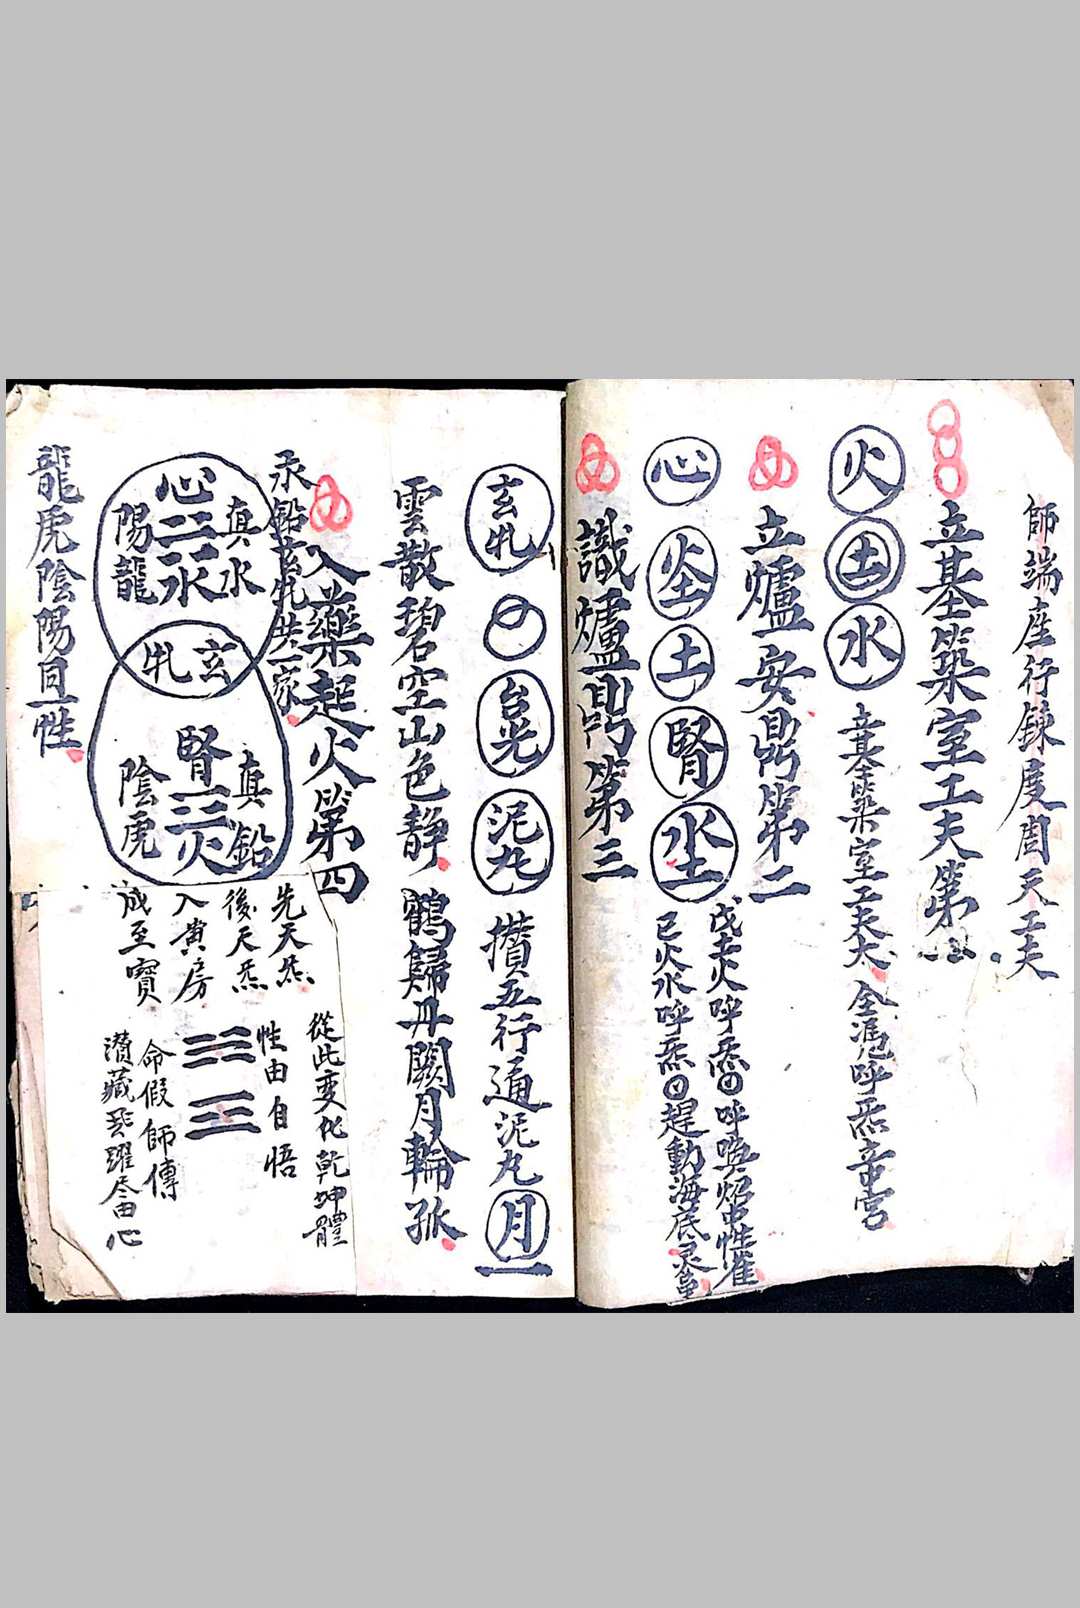 師端座行鍊度周天工夫
立基築室工夫第一
火
土
水
立基築室工夫大 全馮呼炁帝宮
立爐安鼎第二
心
火土
土
腎
水土
戊土火呼炁 呼喚
己火水呼炁 趕動海底
識爐鼎第三
玄牝
台光
泥丸
攢五行通泥丸
月
雲散碧空山色靜 鶴歸丹闕月輪孤
入藥起火第四
汞鉛玄牝共一家
真水
心
水
陽龍
玄牝
真鉛
腎
火
陰虎
龍虎陰陽同一性
從此变化乾坤體
先天炁
後天炁
入黄房
成至寶
性由自悟
命假師傳
潛藏飛躍尽由心